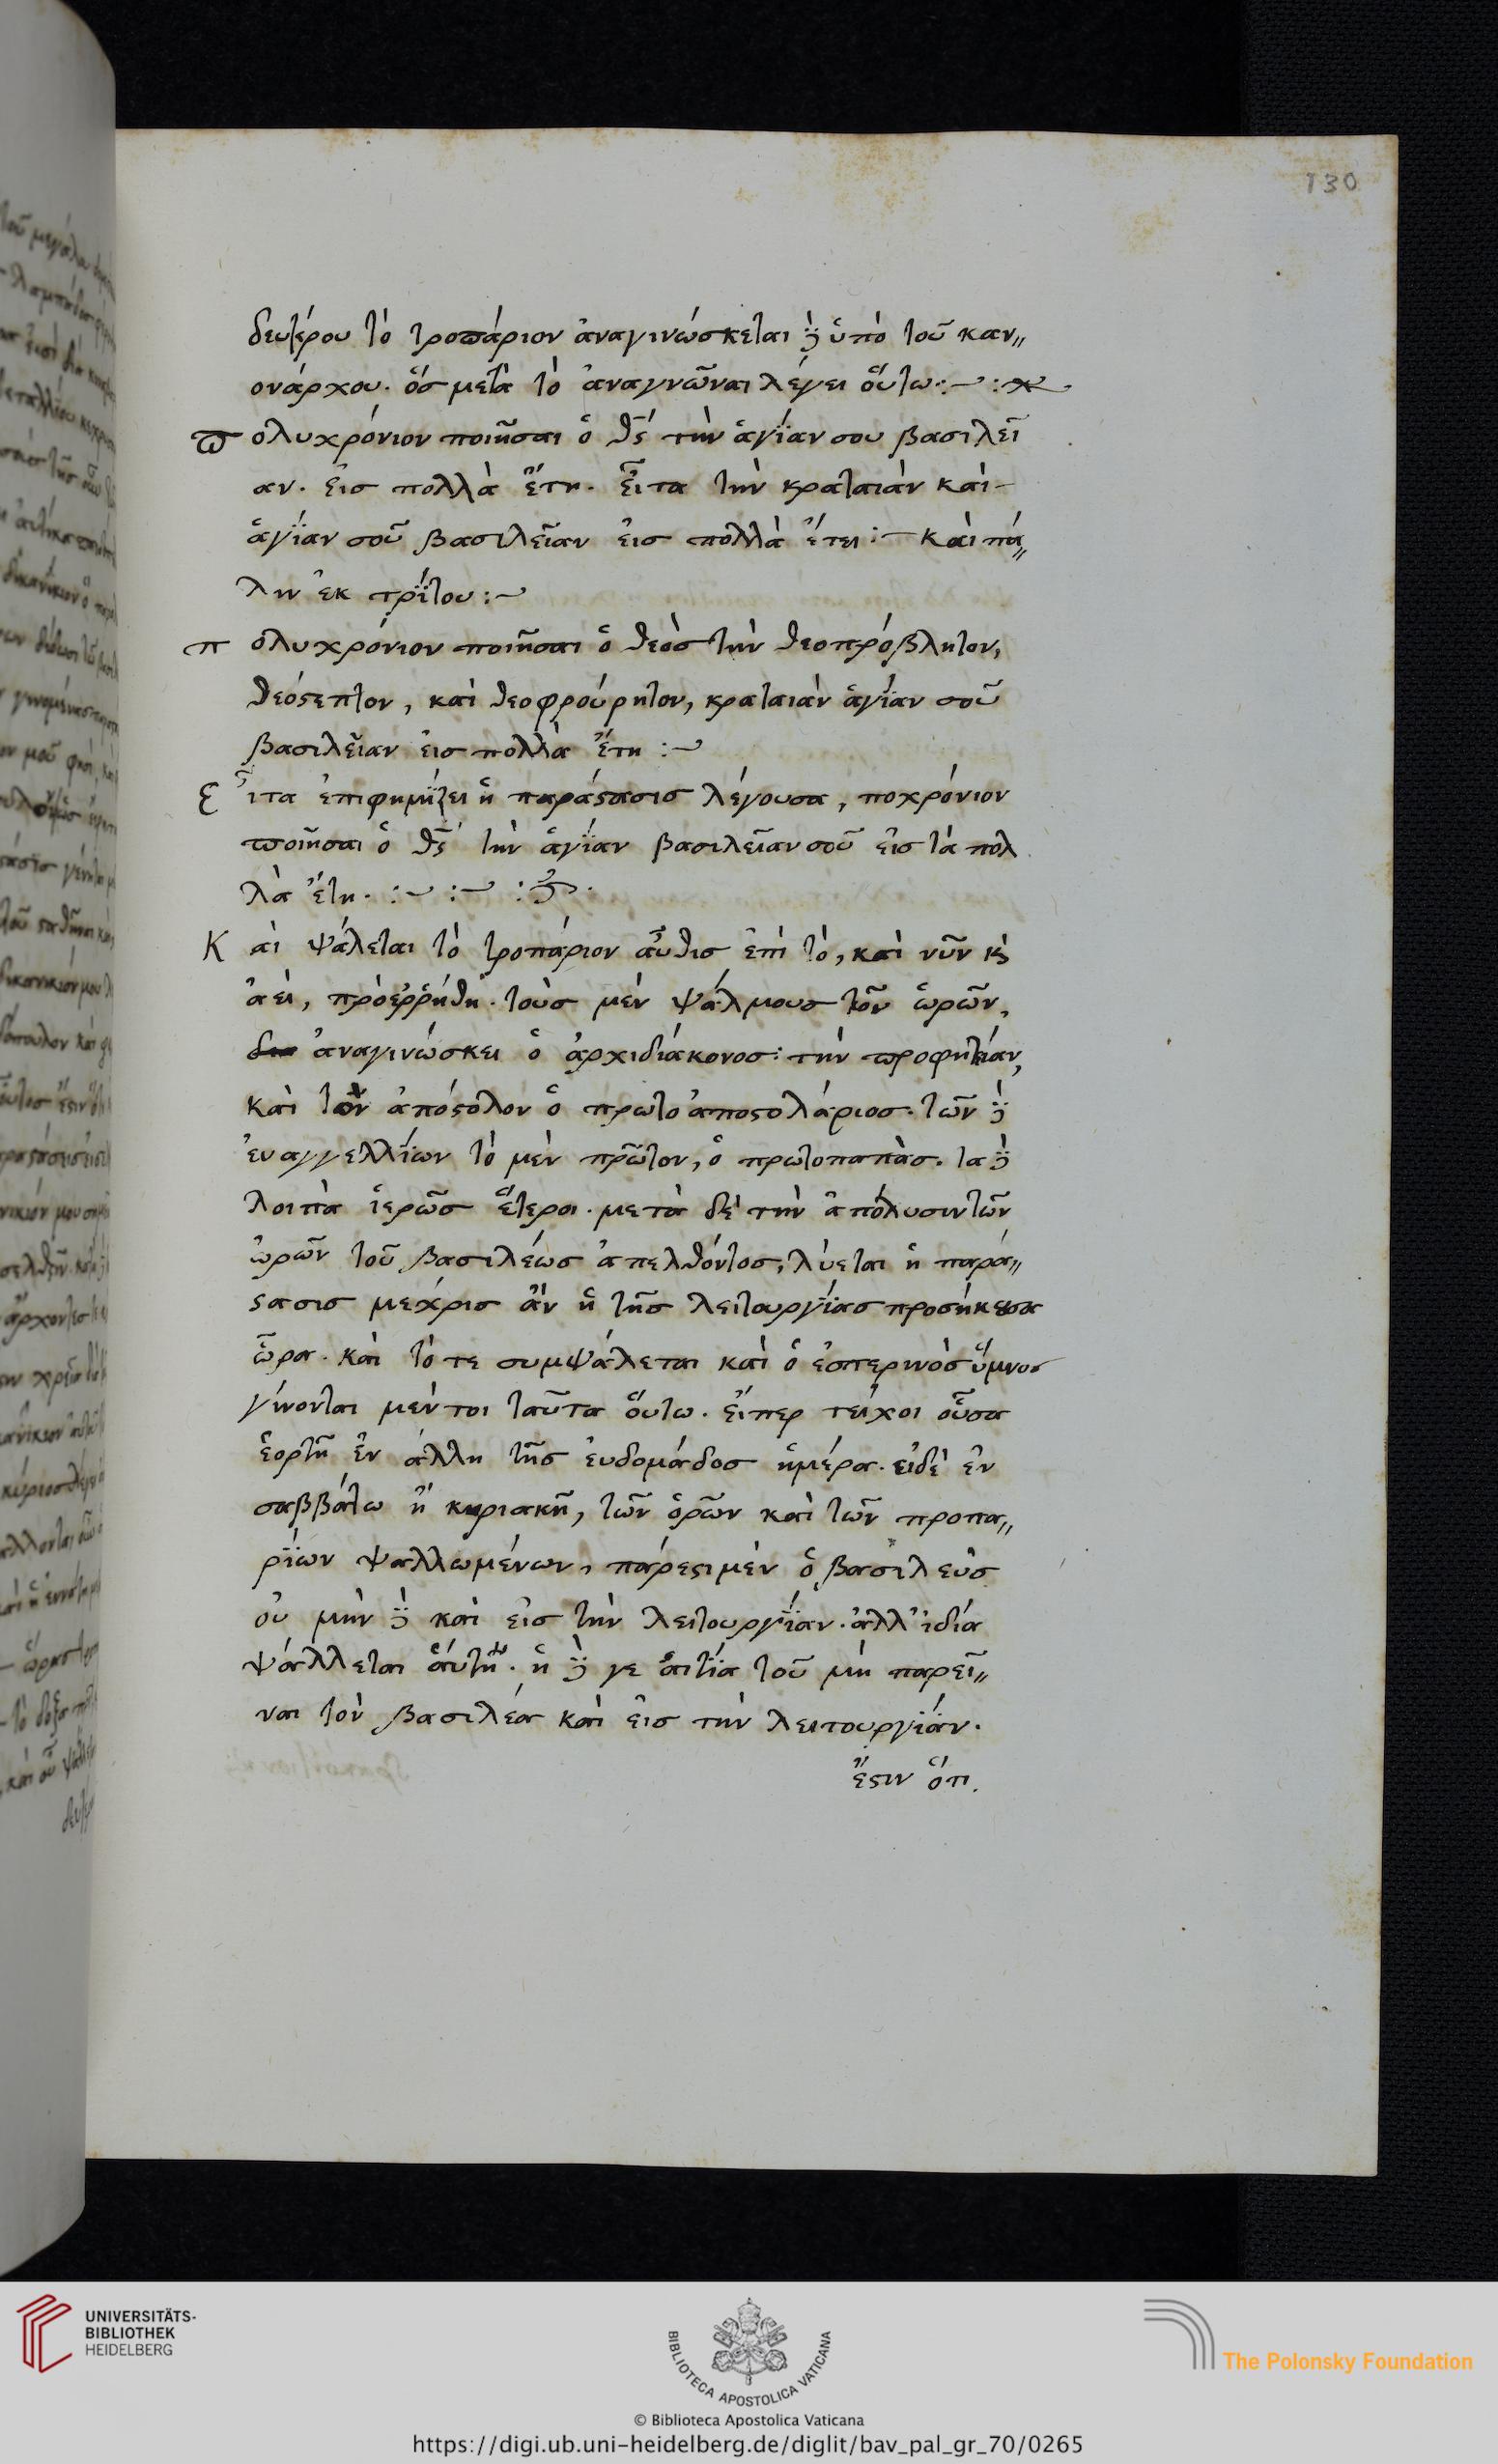 130
δευτέρου τὸ τροπάριον ἀναγινώσκεται δὲ ὑπὸ τοῦ καν〃
ονάρχου. ὅσ μετὰ τὸ ἀναγνῶναι λέγει οὕτω:~:
πολυχρόνιον ποιῆσαι ὁ θσ τὴν ἁγίαν σου βασιλεῖ
αν. εἰσ πολλὰ ἔτη. εἶτα τὴν κραταιὰν καὶ-
ἁγίαν σοῦ βασιλεῖαν εἰσ πολλὰ ἔτει:~ καὶ πά〃
λιν ἐκ τρίτου:~
πολυχρόνιον ποιῆσαι ὁ θεὸσ τὴν θεοπρόβλητον,
θεόσεπτον, καὶ θεοφρούρητον, κραταιὰν ἁγίαν σοῦ
βασιλεῖαν εἰσ πολλὰ ἔτη:~
Εἶτα ἐπιφημίζει ἡ παράϛασισ λέγουσα, ποχρόνιον
ποιῆσαι ὁ θσ τὴν ἁγίαν βασιλεῖαν σοῦ εἰσ τὰ πολ
λὰ ἔτη.:~:~:
Καὶ ψάλεται τὸ τροπάριον αὖθισ ἐπὶ τὸ, καὶ νῦν κὶ
ἀεὶ, πρὸερῤήθη. τοὺσ μὲν ψάλμουσ τῶν ὡρῶν,
ἀναγινώσκει ὁ ἀρχιδιάκονοσ: τὴν προφητείαν,
καὶ τὸν ἀπόϛολον ὁ πρωτοἀποϛολάριοσ. τῶν δὲ
ἐυαγγελλίων τὸ μὲν πρῶτον, ὁ πρωτοπαπὰσ. τα δὲ
λοιπὰ ἱερῶσ ἕτεροι. μετὰ δὲ τὴν ἀπόλυσιν τῶν
ὡρῶν τοῦ βασιλέωσ ἀπελθόντοσ, λύεται ἡ παρά〃
ϛασισ μεχρισ ἂν ἡ τῆσ λειτουργίασ προσήκουσα
ὥρα. καὶ τό τε συμψάλεται καὶ ὁ ἑσπερινὸσ ὕμνοσ
γίνονται μέν τοι ταῦτα οὕτω. εἴπερ τείχοι οὖσα
ἑορτῆ ἐν ἄλλη τῆσ ἐυδομάδοσ ἡμέρα. εἰδὲ ἐν
σαββάτω ἢ κυριακῆ, τῶν ὁρῶν καὶ τῶν προπα〃
ρίων ψαλλωμένων, πάρεϛι μὲν ὁ βασιλεὺσ
οὐ μὴν δὲ καὶ εἰσ τὴν λειτουργίαν. ἀλλ' ἰδία
ψάλλεται ἁύτη. ἡ δέ γε ἀιτία τοῦ μὴ παρεῖ〃
ναι τὸν βασιλέα καὶ εἰσ τὴν λειτουργίαν.
ἔϛιν ὅτι.
UNIVERSITÄTS-
BIBLIOTHEK
HEIDELBERG
BIBLIOTECA APOSTOLICA VATICANA
The Polonsky Foundation
© Biblioteca Apostolica Vaticana
https://digi.ub.uni-heidelberg.de/diglit/bav_pal_gr_70/0265